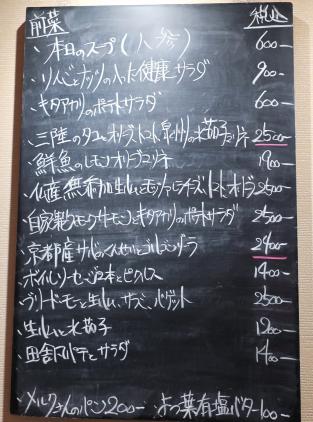 前菜 税込
、本日のスープ(人分) 600-
、りんごとナッツの入った健康サラダ 900-
、キタアカリのポテトサラダ 600-
、三陸のタコ、オリーブ、トマト、泉州の水茄子 2500-
、鮮魚のレモンオリーブ 1900-
、仏産無添加生ハム、モッツァレラチーズ、トマト 2500-
、自家製スモークサーモンとキタアカリのポテトサラダ 2500-
、京都産サルジ いちじくとゴルゴンゾーラ 2400-
、ボイルソーセージ2本とピクルス 1400-
、ブリードモーと生ハム、サラミ、バゲット 2500-
、生ハムと水茄子 1200-
、田舎風パテとサラダ 1400-
、メルクさんのパン200- よつ葉有塩バター100-